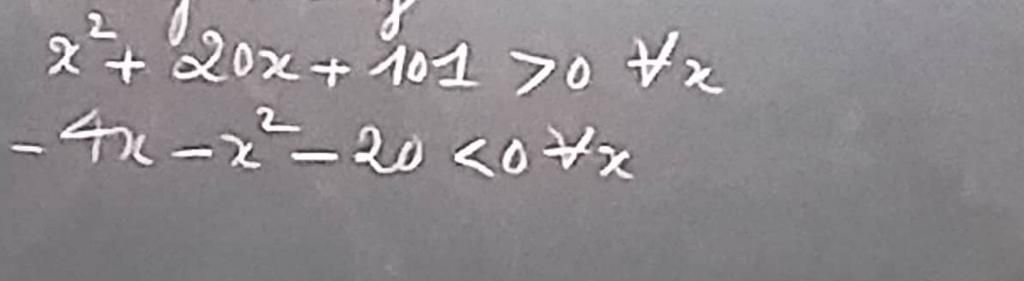 x² + 20x + 101 > 0 ∀x
- 4x - x² - 20 < 0 ∀x